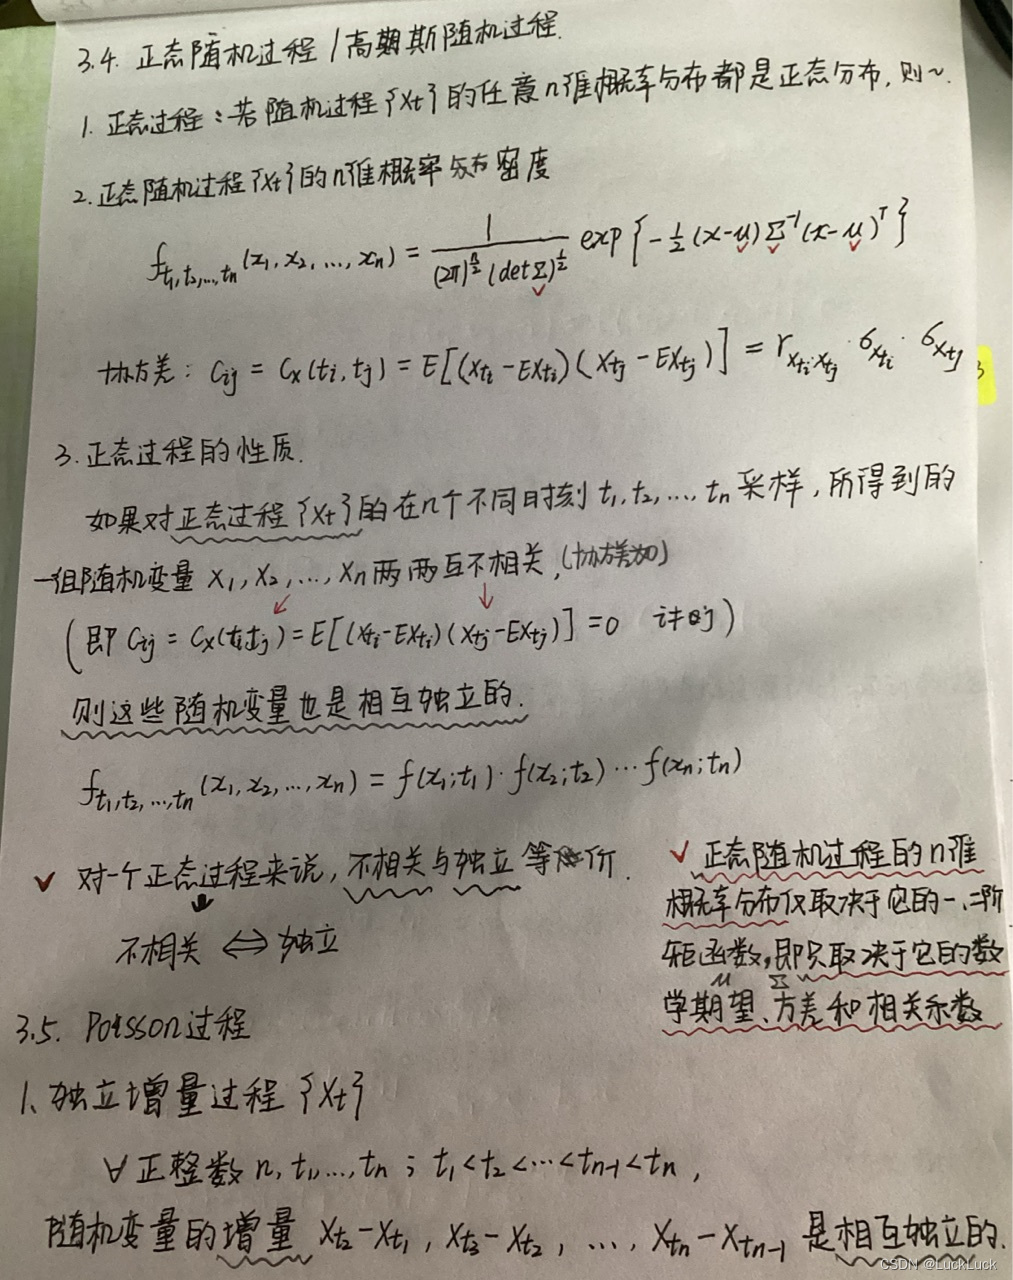 3.4. 正态随机过程/高斯随机过程.
1. 正态过程:若随机过程{Xt}的任意n维概率分布都是正态分布,则~.
2. 正态随机过程{Xt}的n维概率分布密度
f_{t1,t2,...,tn}(x1, x2, ..., xn) = 1/((2π)^{n/2} (detΣ)^{1/2}) exp{-1/2 (x-μ) Σ^{-1} (x-μ)^T}
协方差: Cij = Cx(ti, tj) = E[(Xti - EXti)(Xtj - EXtj)] = r_{XtiXtj} · σ_{Xti} · σ_{Xtj}
3. 正态过程的性质.
如果对正态过程{Xt}的在n个不同时刻 t1, t2, ..., tn 采样,所得到的
一组随机变量 X1, X2, ..., Xn 两两互不相关,(协方差为0)
(即 Cij = Cx(ti,tj) = E[(Xti - EXti)(Xtj - EXtj)] = 0 i≠j)
则这些随机变量也是相互独立的.
f_{t1,t2,...,tn}(x1, x2, ..., xn) = f(x1;t1)·f(x2;t2)···f(xn;tn)
✓ 对一个正态过程来说,不相关与独立等价.
不相关 ⇔ 独立
✓ 正态随机过程的n维
概率分布仅取决于它的一、二阶
矩函数,即只取决于它的数
μ Σ
学期望、方差和相关系数
3.5. Poisson过程
1、独立增量过程{Xt}
∀ 正整数 n, t1, ..., tn ; t1 < t2 < ··· < tn-1 < tn ,
随机变量的增量 Xt2 - Xt1 , Xt3 - Xt2 , ..., Xtn - Xtn-1 是相互独立的.
CSDN @LuckLuck